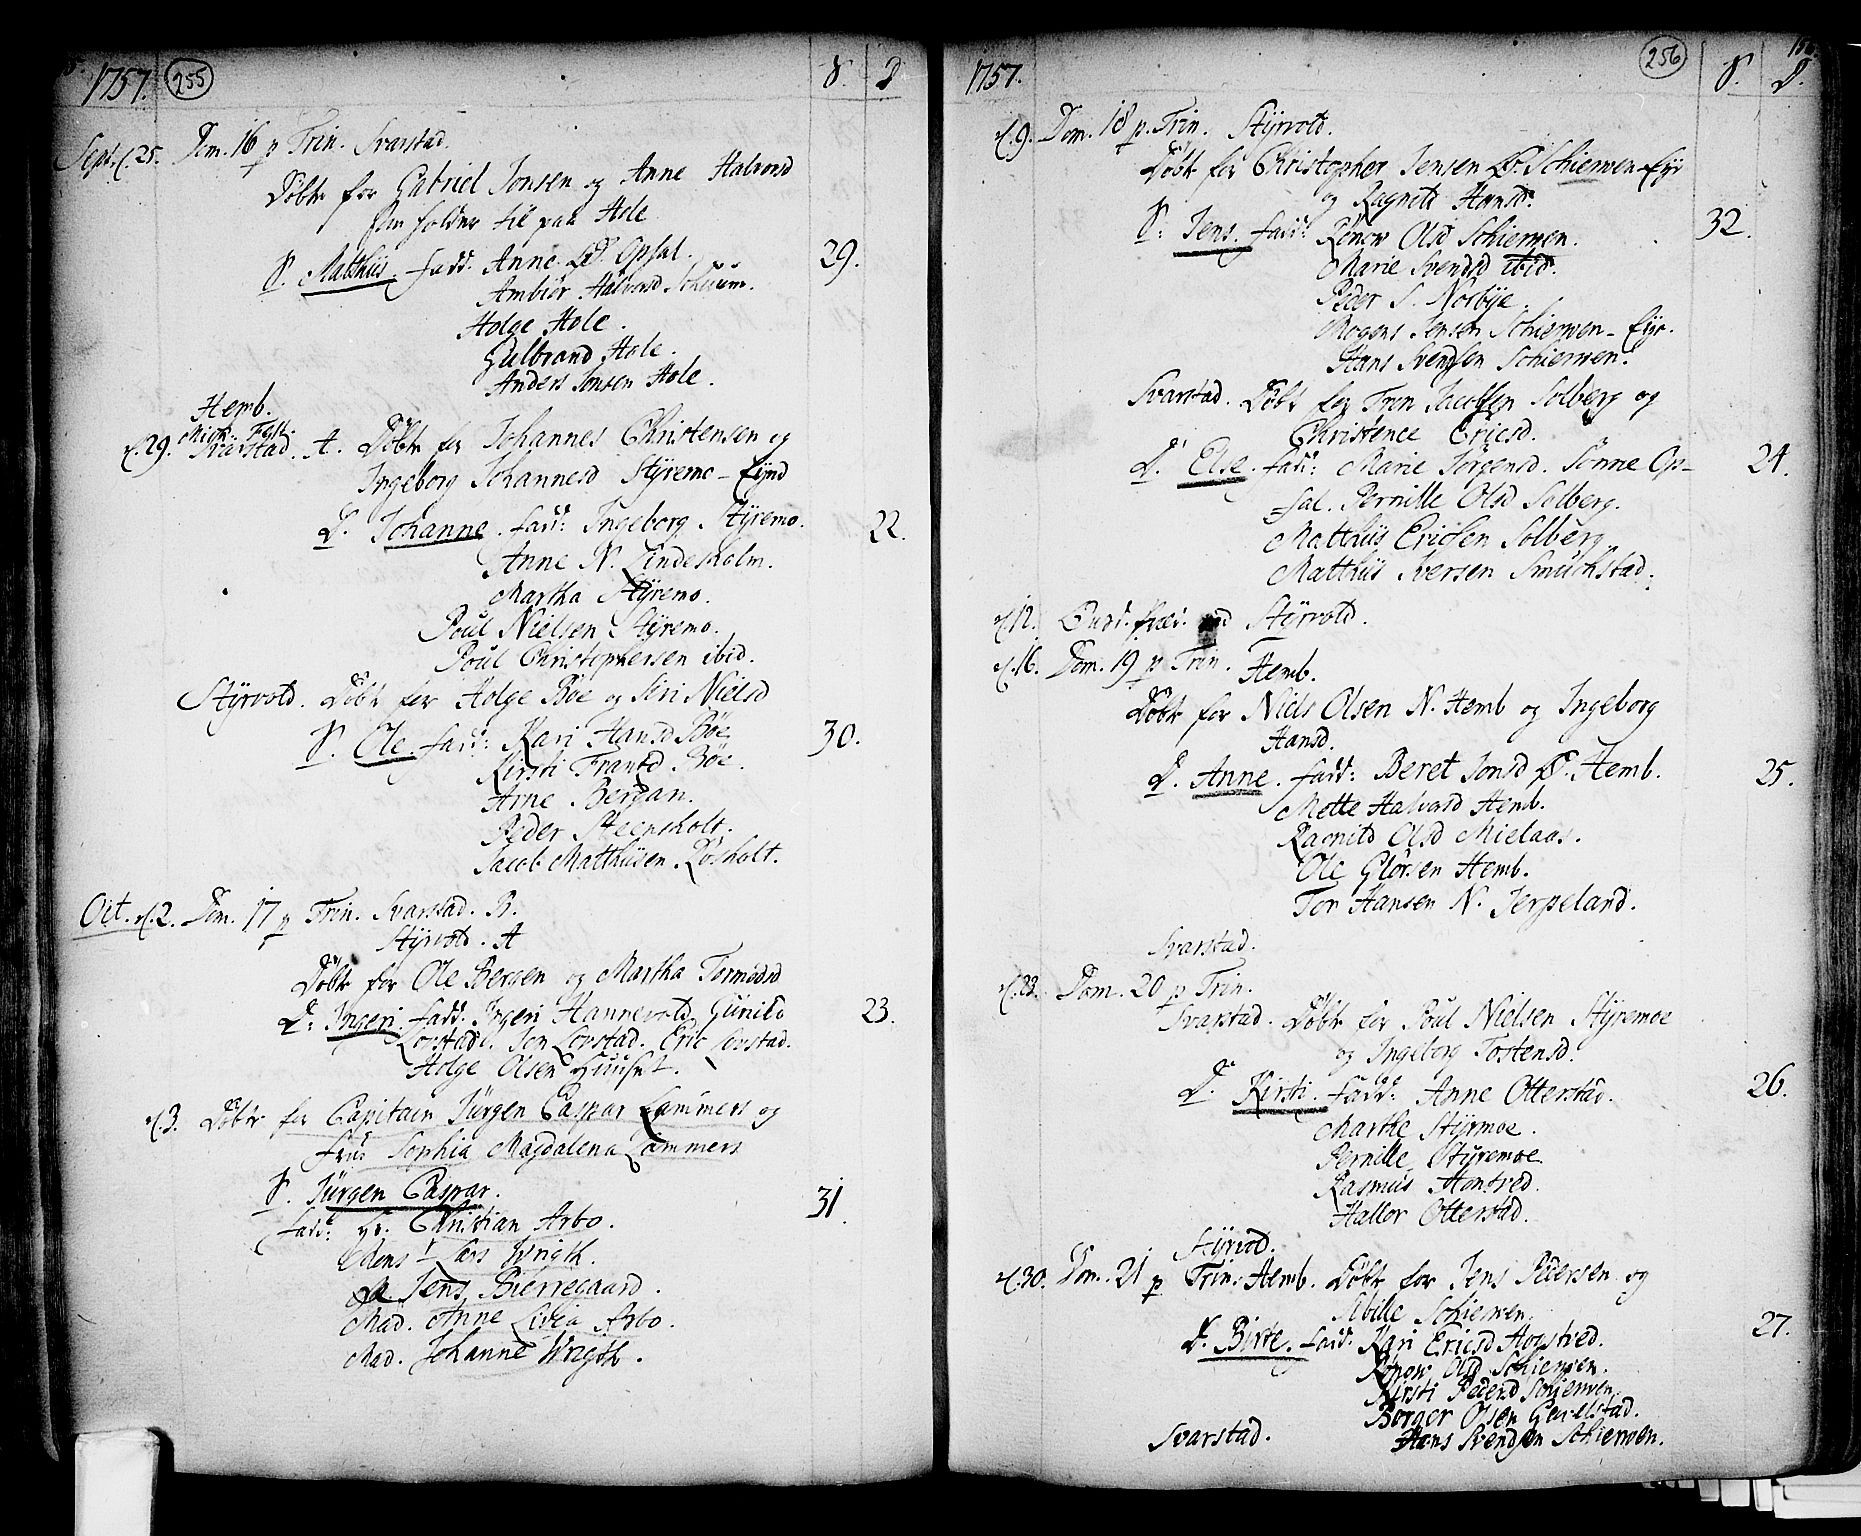 1757. 255 S. D
Sept. d. 25. Dom. 16 p Trin. Svarstad.
Döbt for Gabriel Jonsen og Anne Halvorsd
som holder til paa Hole
S. Matthiis. Fadd: Anne Opsal.
Ambiör Halvorsd 29.
Holge Hole.
Gulbrand Hole.
Anders Jonsen Hole.
Hemb.
Mich. Fest.
d. 29. Svarstad. A. Döbt for Johannes Christensen og
Ingeborg Johannesd Styremo - Eynd
D. Johanne. Fadd: Ingeborg Styremo. 22.
Anne N. Lindesholm.
Martha Styremo.
Poul Nielsen Styremo.
Poul Christophersen ibid.
Styrvold. Döbt for Holge Böe og Siri Nielsd
S. Ole. Fadd: Kari Hansd Böe 30.
Kirsti Frantzd Böe.
Arne Bergan.
Peder Steensholt.
Jacob Matthisen Rösholt.
Oct. d. 2. Dom. 17 p Trin. Svarstad. R.
Styrvold. A
Döbt for Ole Bergen og Martha Tormodsd
D: Ingeri. Fadd. Ingeri Hannevold, Gunild 23.
Lorstad. Jon Lorstad. Eric Lorstad.
Holge Olsen
d. 3. Döbt for Capitain Jürgen Caspar Lammers og
Frue Sophia Magdalena Lammers
S. Jürgen Caspar. 31.
Fadd: Hr. Christian Arbo.
Lars Wrigth.
Jens Bierregaard.
Mad. Anne Livia Arbo.
Mad. Johanne Wrigth.
1757. 256 S. D.
d. 9. Dom. 18 p. Trin. Styrvold.
Döbt for Christopher Jensen Schierven Eye
og Ragnild Hansd.
S: Jens. Fadd: Rönow Olsd Schierven. 32.
Marie Svendsd ibid.
Peder S. Norbye.
Mogens Jensen Schierven - Eye.
Hans Svendsen Schierven.
Svarstad. Döbt for Trin Jacobsen Solberg og
Christence Ericsd.
D. Else. Fadd: Marie Jörgensd. Sönne Op- 24.
=sal. Pernille Olsd Solberg.
Matthiis Ericsen Solberg
Matthiis Iversen Smuchstad.
d. 12. Styrvold.
d. 16. Dom. 19 p Trin. Hemb.
Döbt for Niels Olsen N. Hemb og Ingeborg
Hansd.
D. Anne. Fadd: Beret Jonsd Hemb. 25.
Mette Halvorsd Hemb.
Ragnild Olsd Mielaas.
Ole Glörsen Hemb.
Tor Hansen N. Jerpeland.
Svarstad.
d. 23. Dom. 20 p Trin.
Svarstad. Döbt for Poul Nielsen Styremoe
og Ingeborg Tostensd.
D. Kirsti. Fadd: Anne Otterstad. 26.
Marthe Styrmoe.
Pernille Styremoe
Rasmus
Hallor Otterstad.
Styrvod.
d. 30. Dom. 21 p Trin. Hemb. Döbt for Jens Pedersen og
Sibille Schierven.
D. Birte. Fadd: Kari Ericsd 27.
Rönow Olsd Schierven.
Kirsti Pedersd Schierven.
Borger Olsen Gevelstad.
Svarstad. Hans Svendsen Schierven.